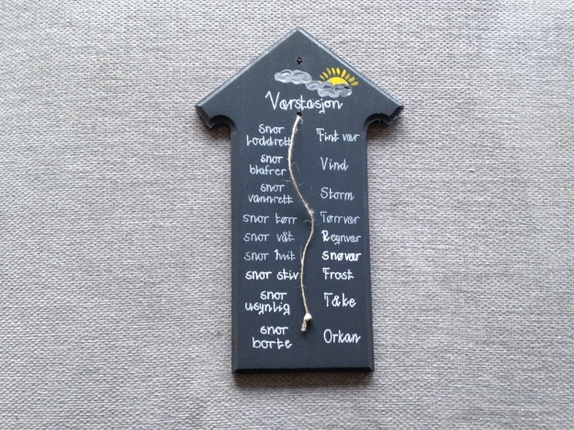 Værstasjon
snor loddrett Fint vær
snor blafrer Vind
snor vannrett Storm
snor tørr Tørrvær
snor våt Regnvær
snor hvit snøvær
snor stiv Frost
snor usynlig Tåke
snor borte Orkan